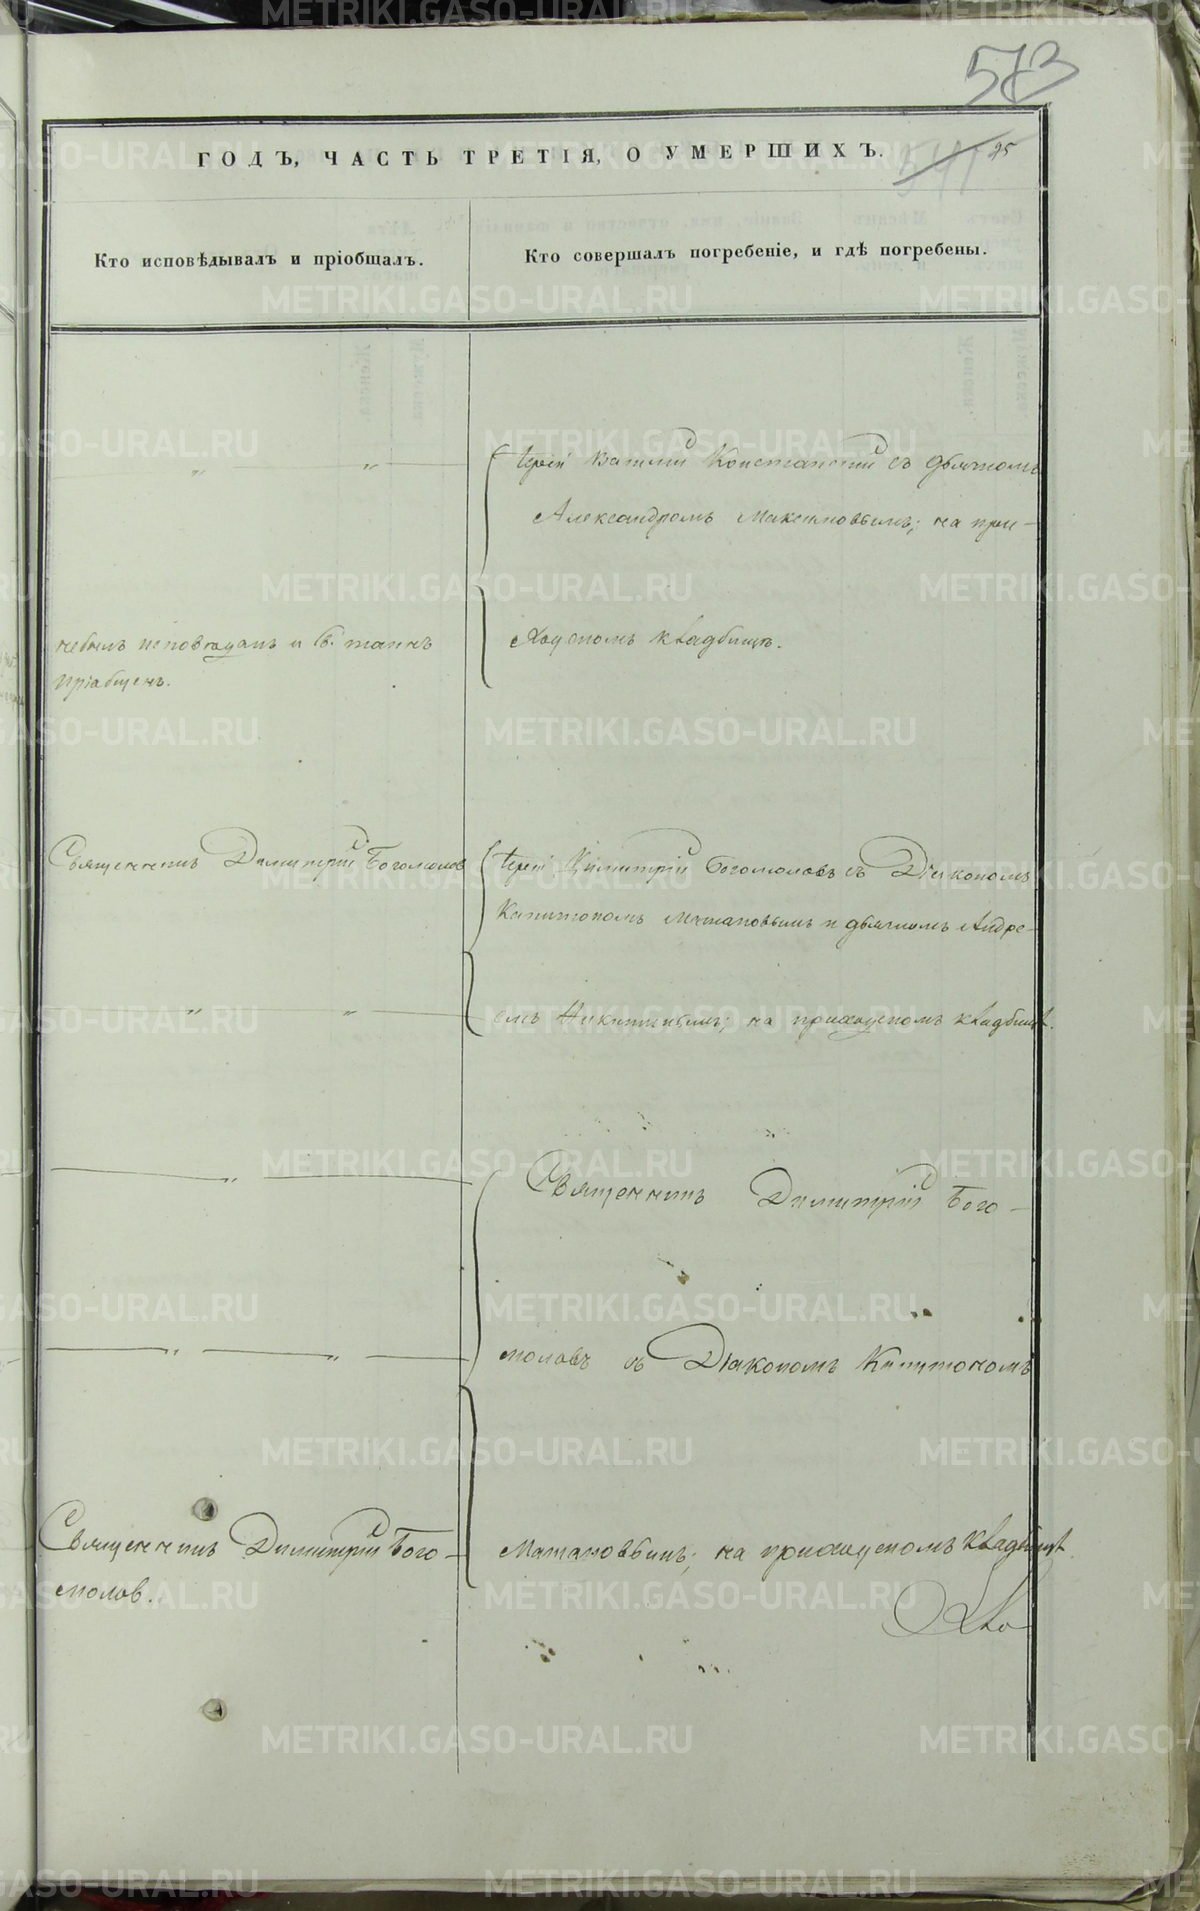 573
ГОДЪ, ЧАСТЬ ТРЕТІЯ, О УМЕРШИХЪ.
541 95
Кто исповѣдывалъ и пріобщалъ.
Кто совершалъ погребеніе, и гдѣ погребены.
Іерей Василій Констанскій съ дьячкомъ
Александромъ Максимовымъ; на при-
ходскомъ кладбищѣ.
небылъ исповѣданъ и Св. таинъ
пріабщенъ.
Священникъ Димитрій Богомолов
Іерей Димитрій Богомоловъ съ Діакономъ
Капитономъ Матановымъ и дьячкомъ Андре-
емъ Никитинымъ; на приходскомъ кладбищѣ.
Священникъ Димитрій Бого-
моловъ съ Діакономъ Капитономъ
Священникъ Димитрій Бого-
молов.
Матановымъ; на приходскомъ кладбищѣ.
METRIKI.GASO-URAL.RU